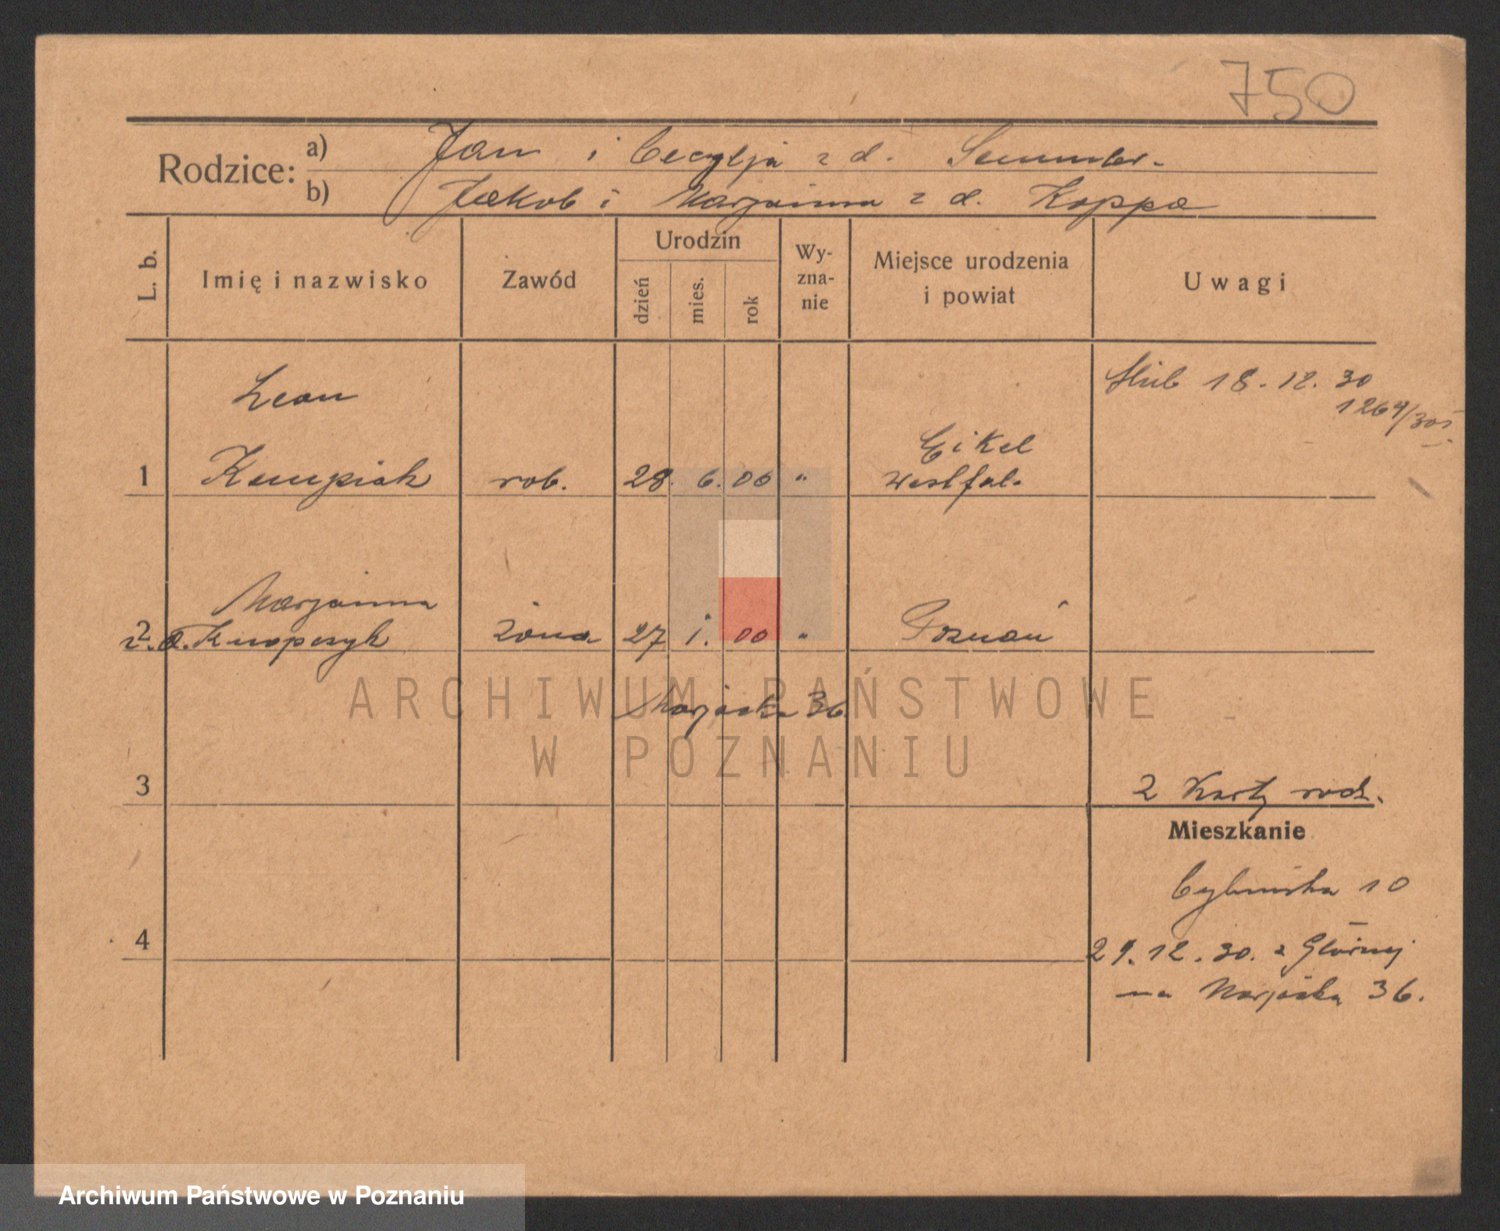 750
Rodzice: a) Jan i Cecylja z d.
b) Jakob i Marjanna z d. Koppa
L. b. Imię i nazwisko Zawód Urodzin dzień mies. rok Wyznanie Miejsce urodzenia i powiat Uwagi
Leon
ślub 18.12.30
1 Kempiak rob. 28. 6. 06 " Eikel
Westfal.
Marjanna
2 z. d. żona 27 1. 00 " Poznań
Marjacka 36
ARCHIWUM PAŃSTWOWE
W POZNANIU
3
2 Karty rodz.
Mieszkanie
Cybińska 10
4
29.12.30. z Głównej
na Marjacką 36.
Archiwum Państwowe w Poznaniu